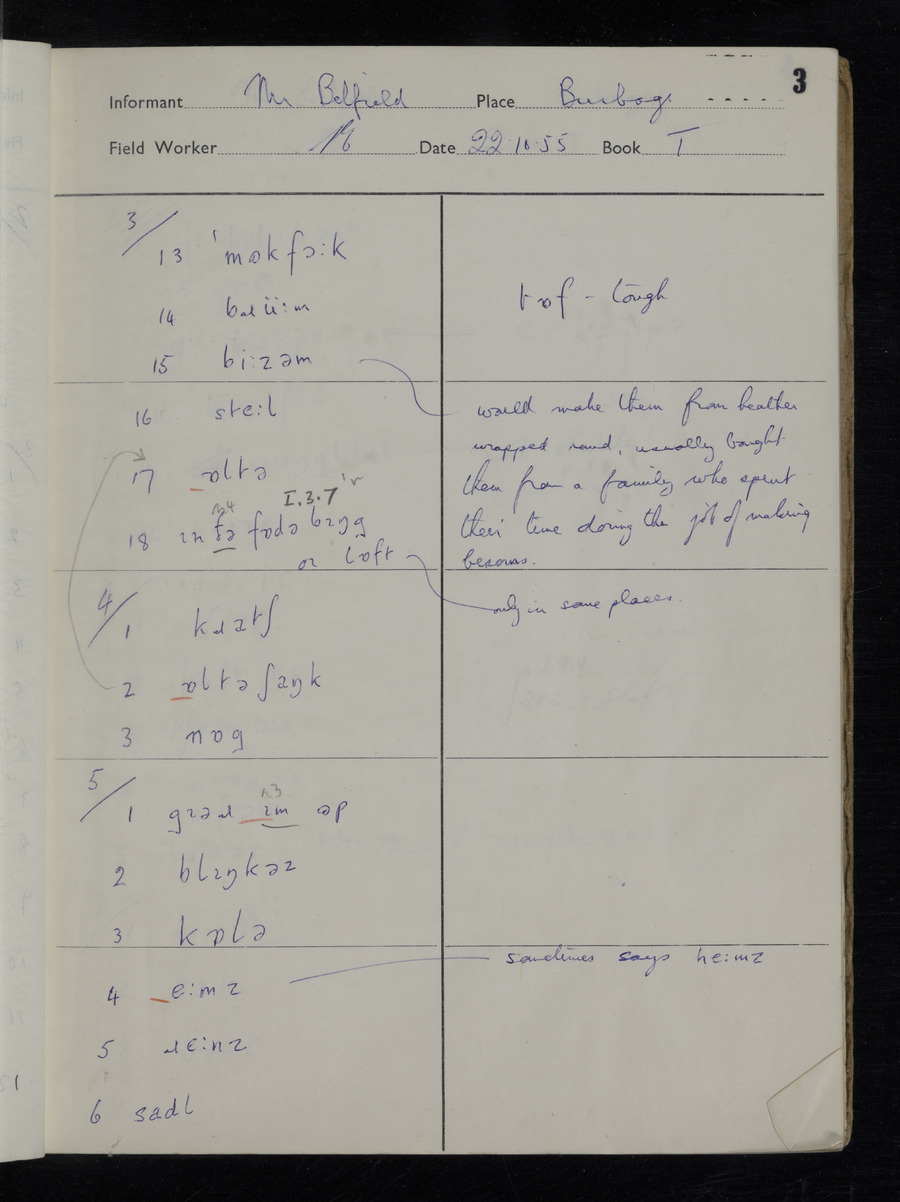 3
Informant Mr Belfield Place Burbage
Field Worker Date 22 10 55 Book T
3/
13 ˈmɒkfɔːk
tɒf - tough
14 bɹüːm
15 biːzəm
16 steːl
would make them from heather
wrapped round, usually bought
17 ɒltə
them from a family who spent
I.3.7
18 ɪn fə fɒdə bɪŋg
their time doing the job of making
or lɒft
besoms.
only in some places.
4/
1 kɹatʃ
2 ɒltə ʃaŋk
3 nɒg
5/
1 gɪəɹ ɪm əp
2 blɪŋkəz
3 kɒlə
sometimes says heːmz
4 eːmz
5 ɹeːnz
6 sadl